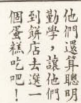 他們還算聰明
勤學，讓他們
到餅店去選一
個蛋糕吃吧！